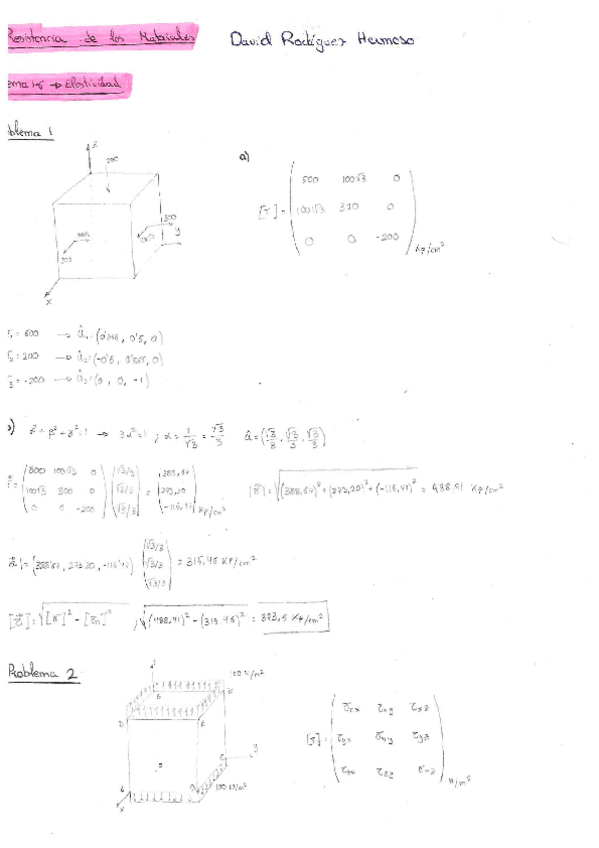 Resistencia de los Materiales David Rodríguez Hermoso
ema 1: → Elasticidad
oblema 1
a)
z
200
500
y
x
[T] = ( 500 100√3 0
100√3 300 0
0 0 -200 ) Kp/cm²
= 600 → û₁ = (0'866, 0'5, 0)
= 200 → û₂ = (-0'5, 0'866, 0)
= -200 → û₃ = (0, 0, -1)
α² + β² + γ² = 1 → 3α² = 1 ; α = 1/√3 = √3/3 û = (√3/3, √3/3, √3/3)
= ( 500 100√3 0
100√3 300 0
0 0 -200 ) ( √3/3
√3/3
√3/3 ) = ( 388,67
273,20
-115,47 ) Kp/cm²
= √(388,67)² + (273,20)² + (-115,47)² = 488,91 Kp/cm²
= (388'67, 273'20, -115'47) ( √3/3
√3/3
√3/3 ) = 315,46 Kp/cm²
; √(488,91)² - (315,46)² = 373,5 Kp/cm²
Problema 2
100 N/m²
y
x
100 N/m²
[T] = ( σnx τxy τxz
τyx σny τyz
τzx τzy σnz ) N/m²